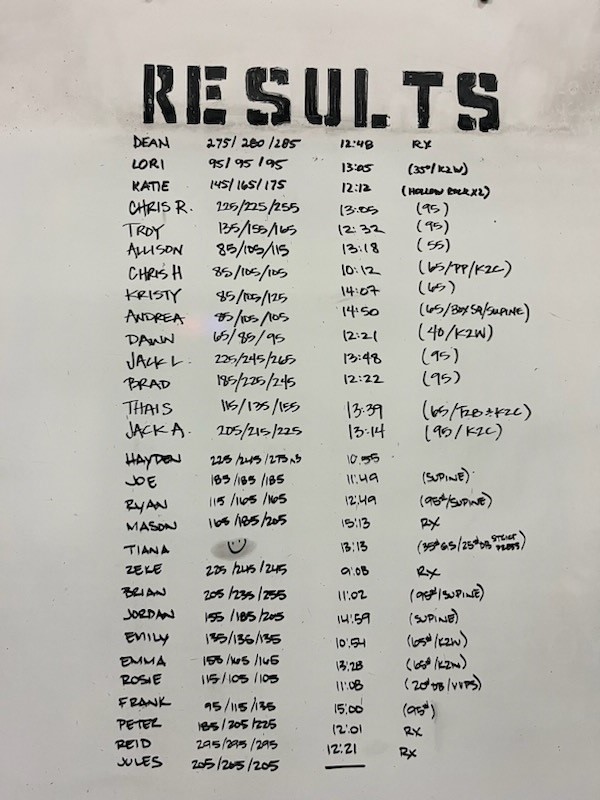 RESULTS
DEAN 275/280/285 12:48 RX
LORI 95/95/95 13:05 (35#/K2W)
KATIE 145/165/175 12:12 (HOLLOW ROCK X2)
CHRIS R. 225/225/255 13:05 (95)
TROY 135/155/165 12:32 (95)
ALLISON 85/105/115 13:18 (55)
CHRIS H 85/105/105 10:12 (65/PP/K2C)
KRISTY 85/105/125 14:07 (65)
ANDREA 85/105/105 14:50 (65/BOX SQ/SUPINE)
DAWN 65/85/95 12:21 (40/K2W)
JACK L. 225/245/265 13:48 (95)
BRAD 185/225/245 12:22 (95)
THAIS 115/135/155 13:39 (65/T2B + K2C)
JACK A. 205/215/225 13:14 (95/K2C)
HAYDEN 225/245/275x3 10:55
JOE 185/185/185 11:49 (SUPINE)
RYAN 115/165/165 12:49 (95#/SUPINE)
MASON 165/185/205 15:13 RX
TIANA 13:13 (35# GS/25# DB STRICT PRESS)
ZEKE 225/245/245 9:08 RX
BRIAN 205/235/255 11:02 (95#/SUPINE)
JORDAN 155/185/205 14:59 (SUPINE)
EMILY 135/135/135 10:54 (65#/K2W)
EMMA 155/165/165 13:28 (65#/K2W)
ROSIE 115/105/105 11:08 (20# DB/VVPS)
FRANK 95/115/135 15:00 (95#)
PETER 185/205/225 12:01 RX
REID 295/295/295 12:21 RX
JULES 205/205/205